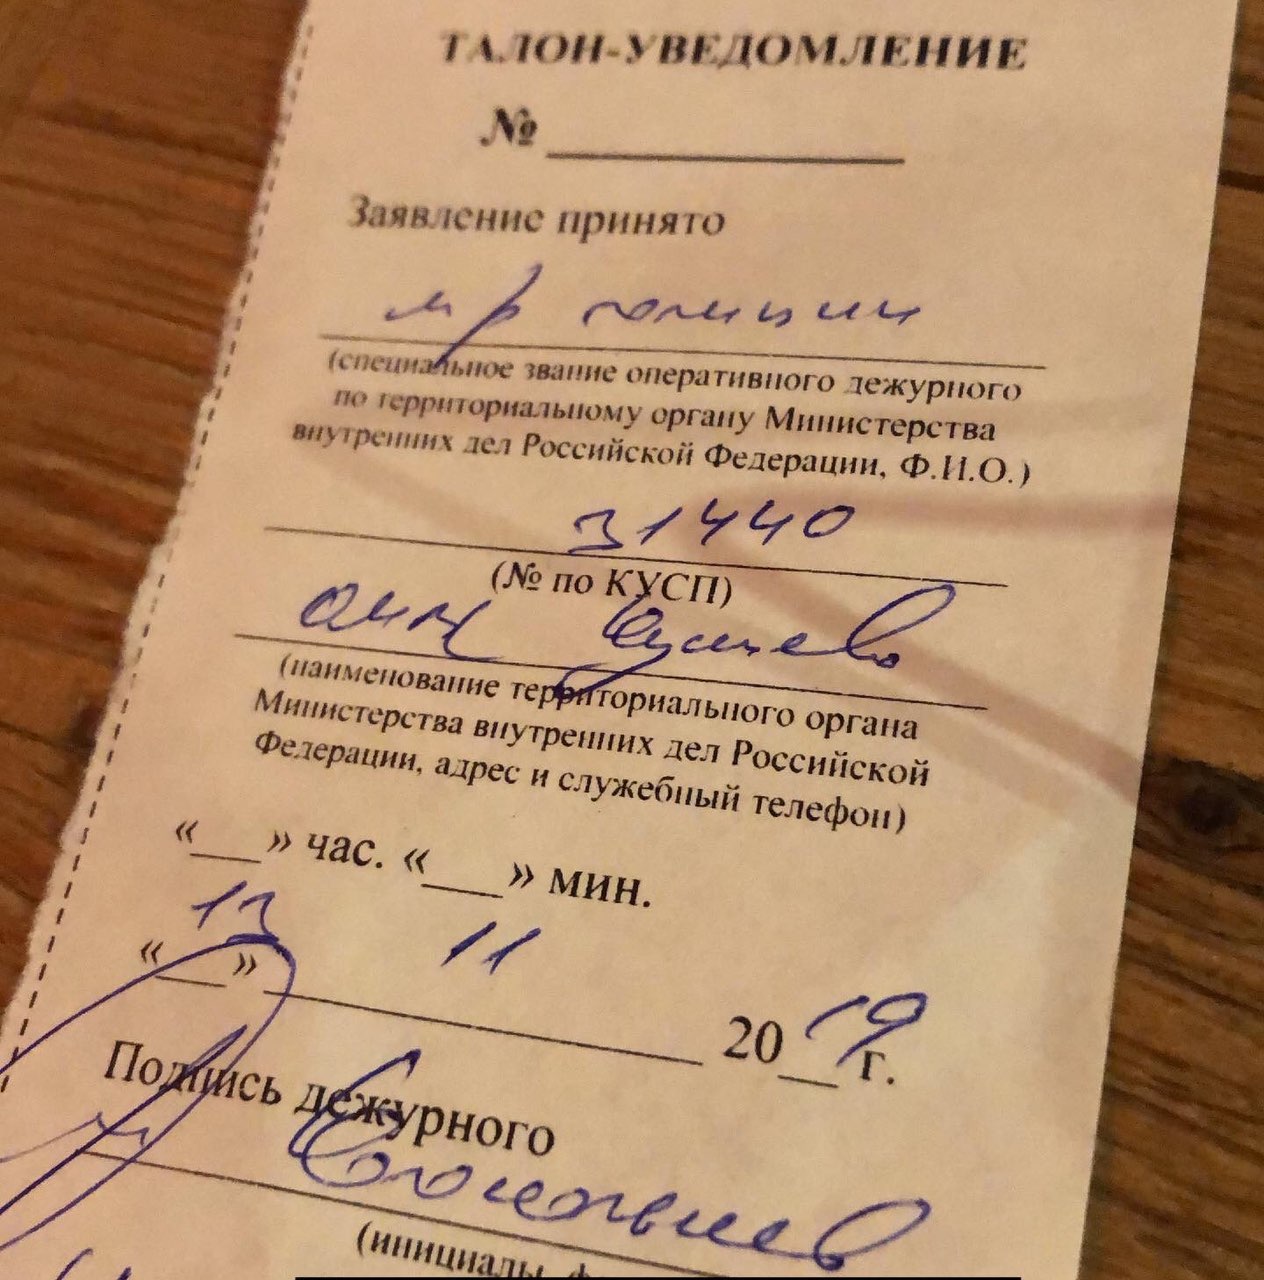 ТАЛОН-УВЕДОМЛЕНИЕ
№
Заявление принято
м-р полиции
(специальное звание оперативного дежурного
по территориальному органу Министерства
внутренних дел Российской Федерации, Ф.И.О.)
31440
(№ по КУСП)
(наименование территориального органа
Министерства внутренних дел Российской
Федерации, адрес и служебный телефон)
«__» час. «__» мин.
13 11
«__» 2019 г.
Подпись дежурного
(инициалы,